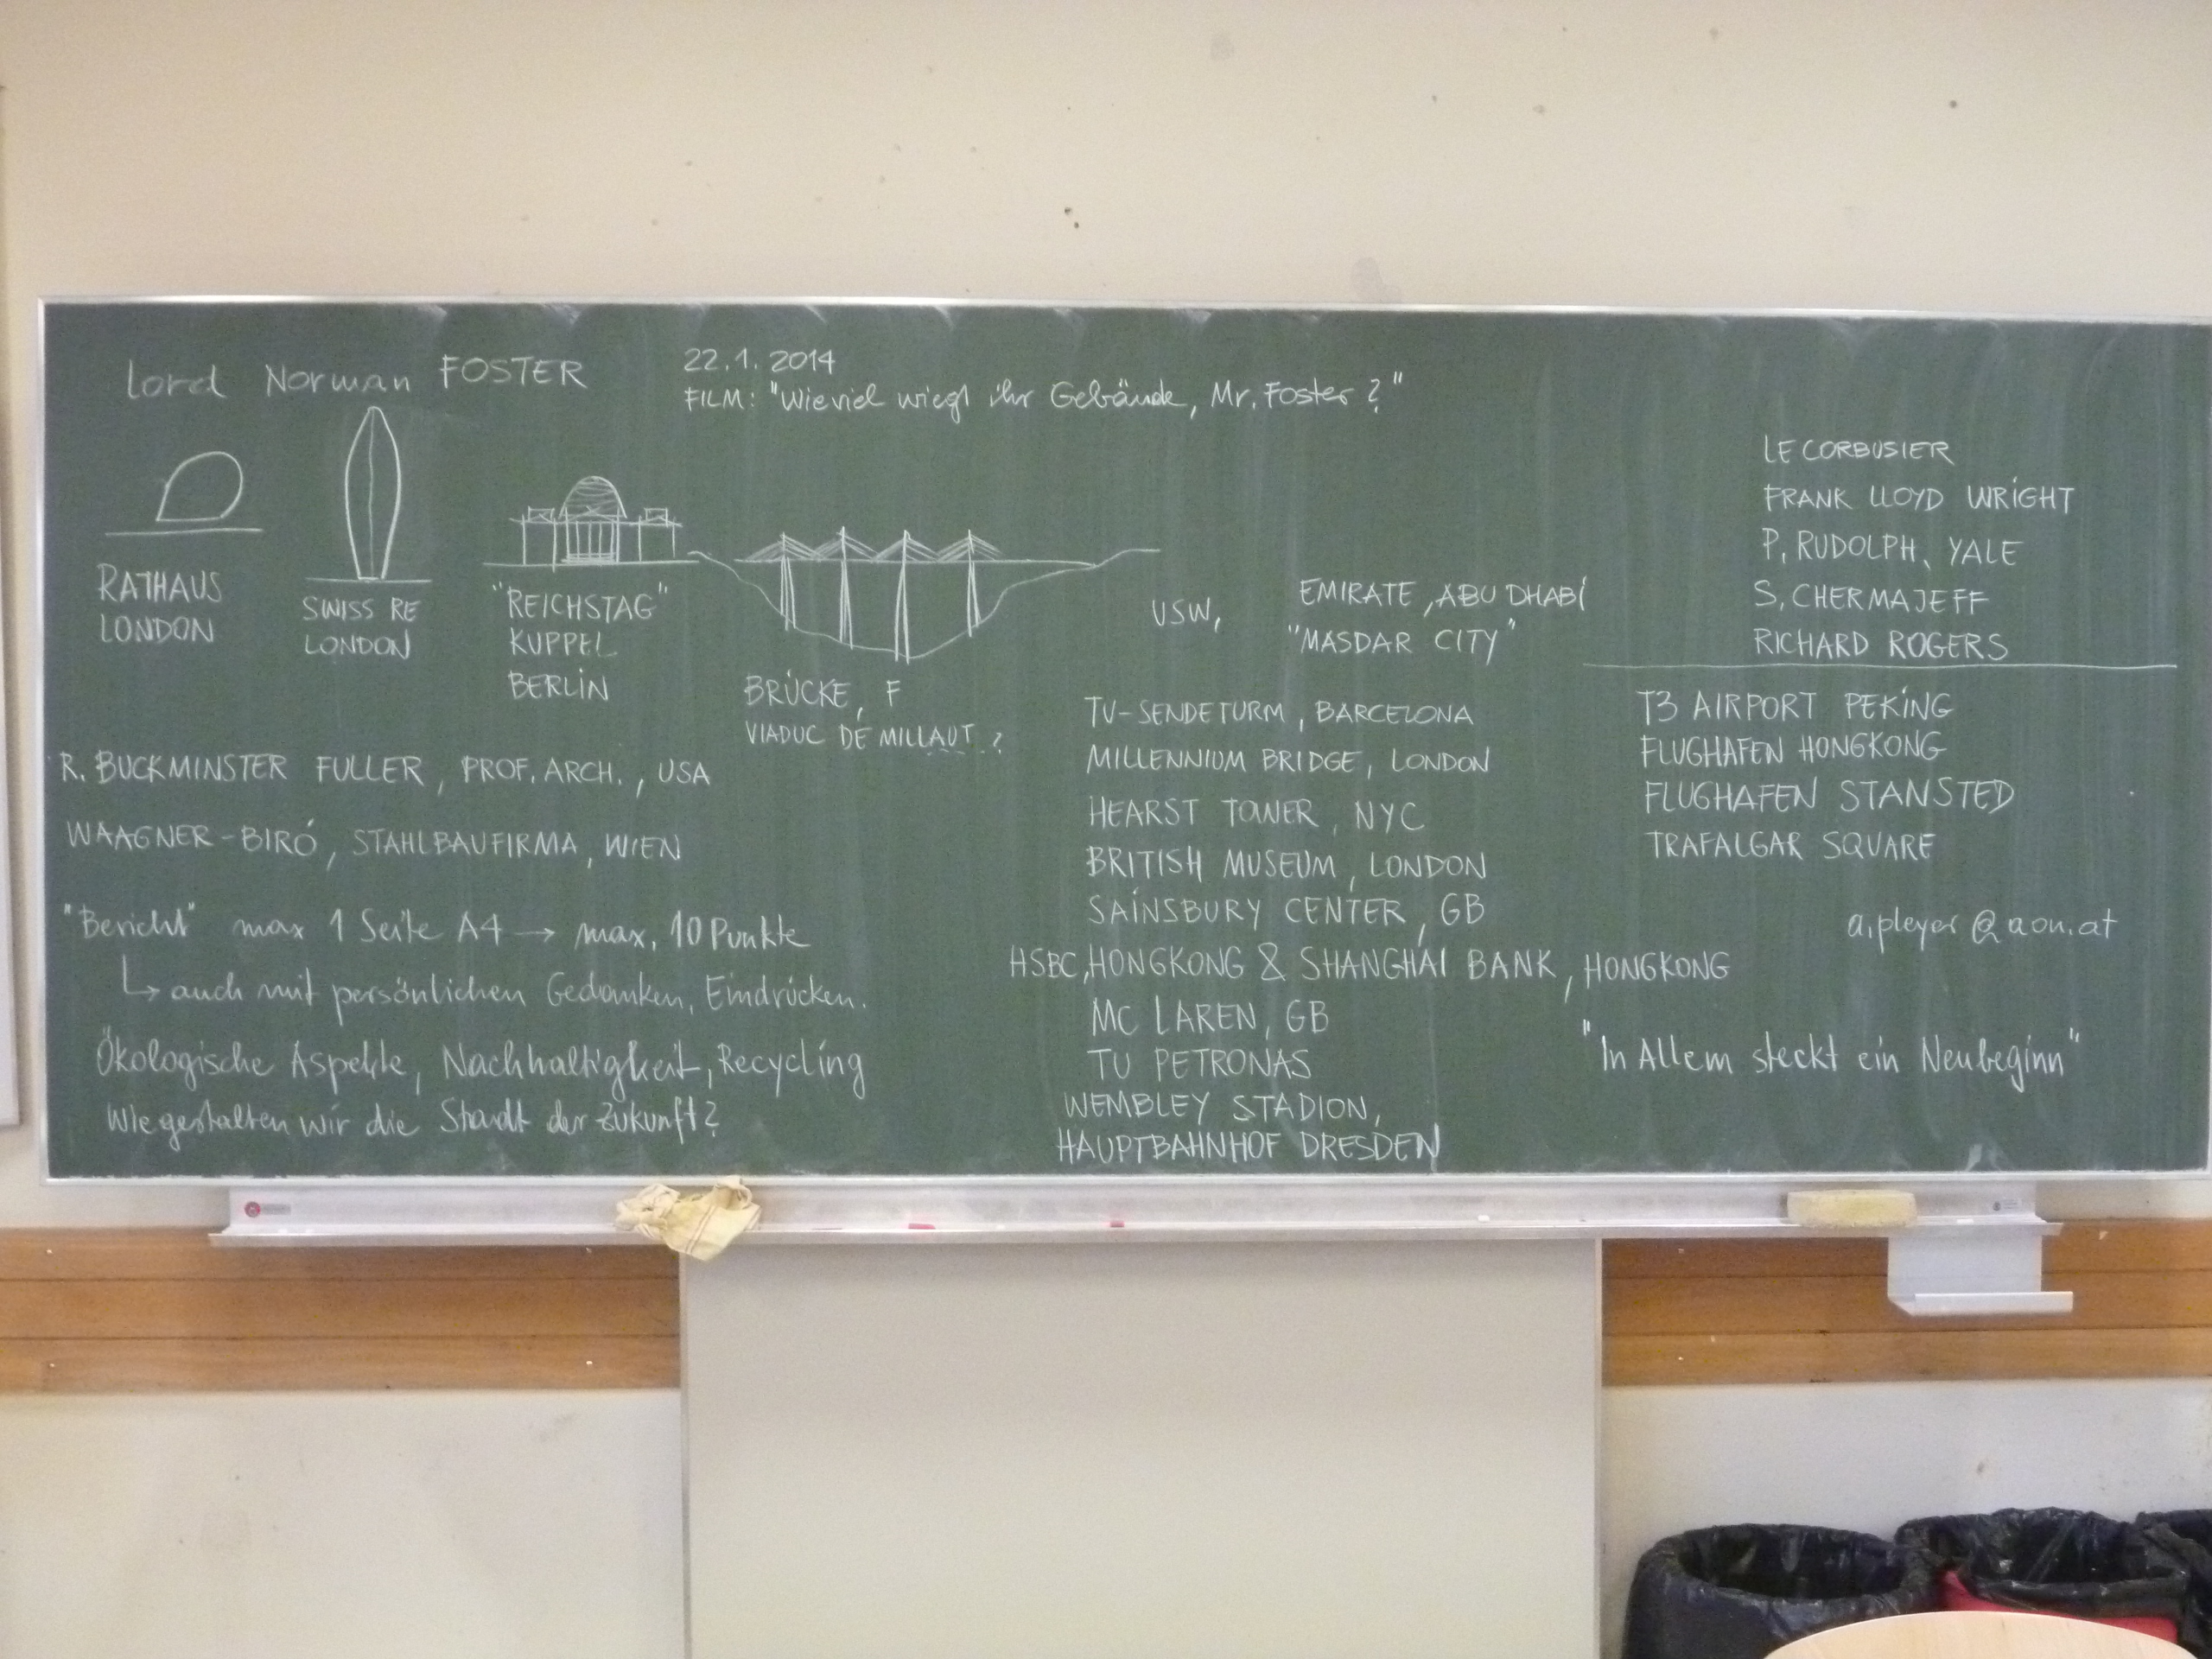 Lord Norman FOSTER
22.1.2014
FILM: "Wieviel wiegt ihr Gebäude, Mr. Foster?"
RATHAUS
LONDON
SWISS RE
LONDON
"REICHSTAG"
KUPPEL
BERLIN
BRÜCKE, F
VIADUC DE MILLAUT ?
USW,
EMIRATE, ABU DHABI
"MASDAR CITY"
R. BUCKMINSTER FULLER, PROF. ARCH., USA
WAAGNER-BIRÓ, STAHLBAUFIRMA, WIEN
"Bericht" max 1 Seite A4 → max. 10 Punkte
↳ auch mit persönlichen Gedanken, Eindrücken.
Ökologische Aspekte, Nachhaltigkeit, Recycling
Wie gestalten wir die Stadt der Zukunft?
TV-SENDETURM, BARCELONA
MILLENNIUM BRIDGE, LONDON
HEARST TOWER, NYC
BRITISH MUSEUM, LONDON
SAINSBURY CENTER, GB
HSBC, HONGKONG & SHANGHAI BANK, HONGKONG
MC LAREN, GB
TU PETRONAS
WEMBLEY STADION,
HAUPTBAHNHOF DRESDEN
LE CORBUSIER
FRANK LLOYD WRIGHT
P. RUDOLPH, YALE
S. CHERMAJEFF
RICHARD ROGERS
T3 AIRPORT PEKING
FLUGHAFEN HONGKONG
FLUGHAFEN STANSTED
TRAFALGAR SQUARE
a.pleyer@aon.at
"In Allem steckt ein Neubeginn"